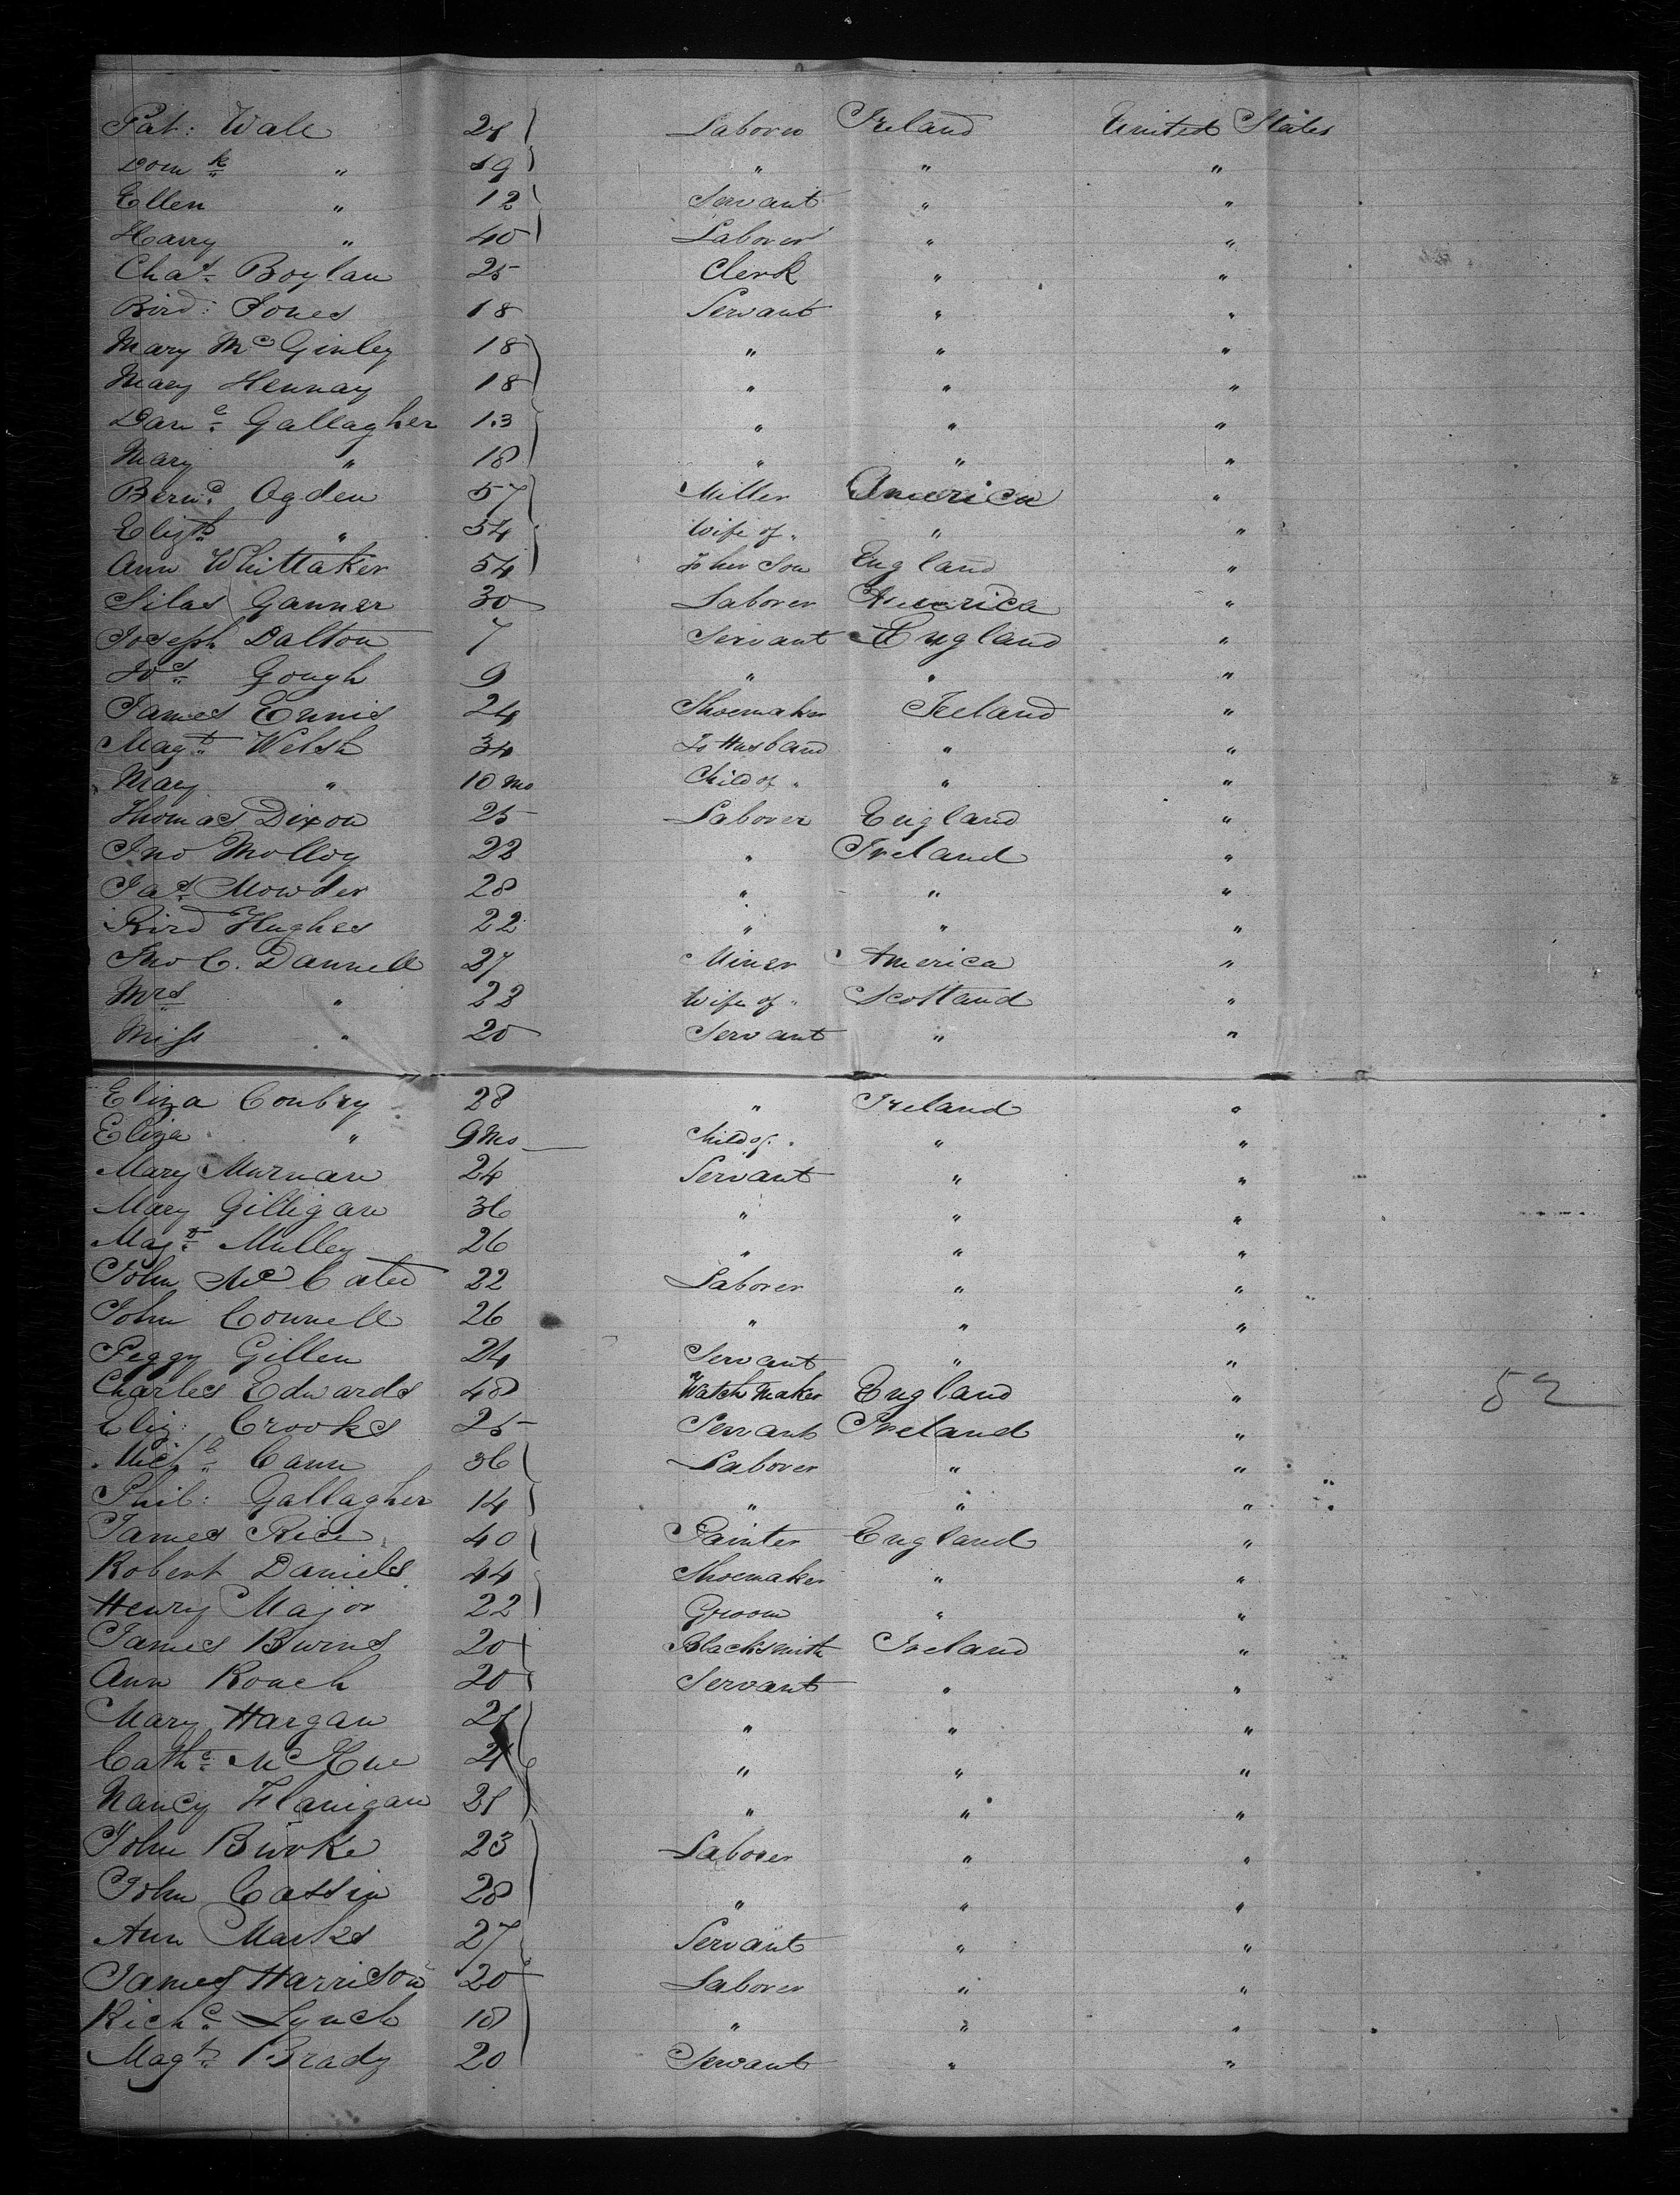 Pat: Wale 21 Laborer Ireland United States
Domk " 19 " " "
Ellen " 12 Servant " "
Harry " 40 Laborer " "
Chas Boylan 25 Clerk " "
Bird: Jones 18 Servant " "
Mary McGinley 18 " " "
Mary Hennay 18 " " "
Gallagher 13 " " "
Mary " 18 " " "
Bernd Ogden 57 Miller America "
Elizth " 54 Wife of " " "
Ann Whittaker 54 To her Son England "
Silas Ganner 30 Laborer America "
Joseph Dalton 7 Servant England "
Jos Gough 9 " " "
James Ennis 24 Shoemaker Ireland "
Magt Welsh 34 To Husband " "
Mary " 10 mo Child of " " "
Thomas Dixon 25 Laborer England "
Jno Molloy 22 " Ireland "
Jas Mowder 28 " " "
Bird Hughes 22 " " "
Jno C. Dannell 27 Miner America "
Mrs " 22 Wife of " Scotland "
Miss " 20 Servant " "
Eliza Conbry 28 " Ireland "
Eliza " 9 Mo Child of " " "
Mary Murnan 24 Servant " "
Mary Gilligan 36 " " "
Magt Mulley 26 " " "
John Mc 22 Laborer " "
John Connell 26 " " "
Peggy Gillen 24 Servant " "
Charles Edwards 48 Watch Maker England " 52
Eliz: Crooks 25 Servant Ireland "
Michl Cann 36 Laborer " "
Phil: Gallagher 14 " " "
James Rice 40 Painter England "
Robert Daniels 44 Shoemaker " "
Henry Major 22 Groom " "
James Burns 20 Blacksmith Ireland "
Ann Roach 20 Servant " "
Mary Hargan 21 " " "
Cathe McHue " " "
Nancy Flanigan 21 " " "
John Burke 23 Laborer " "
John Cassin 28 " " "
Ann Marks 27 Servant " "
James Harrison 20 Laborer " "
Richd Lynch 18 " " "
Magt Brady 20 Servant " "